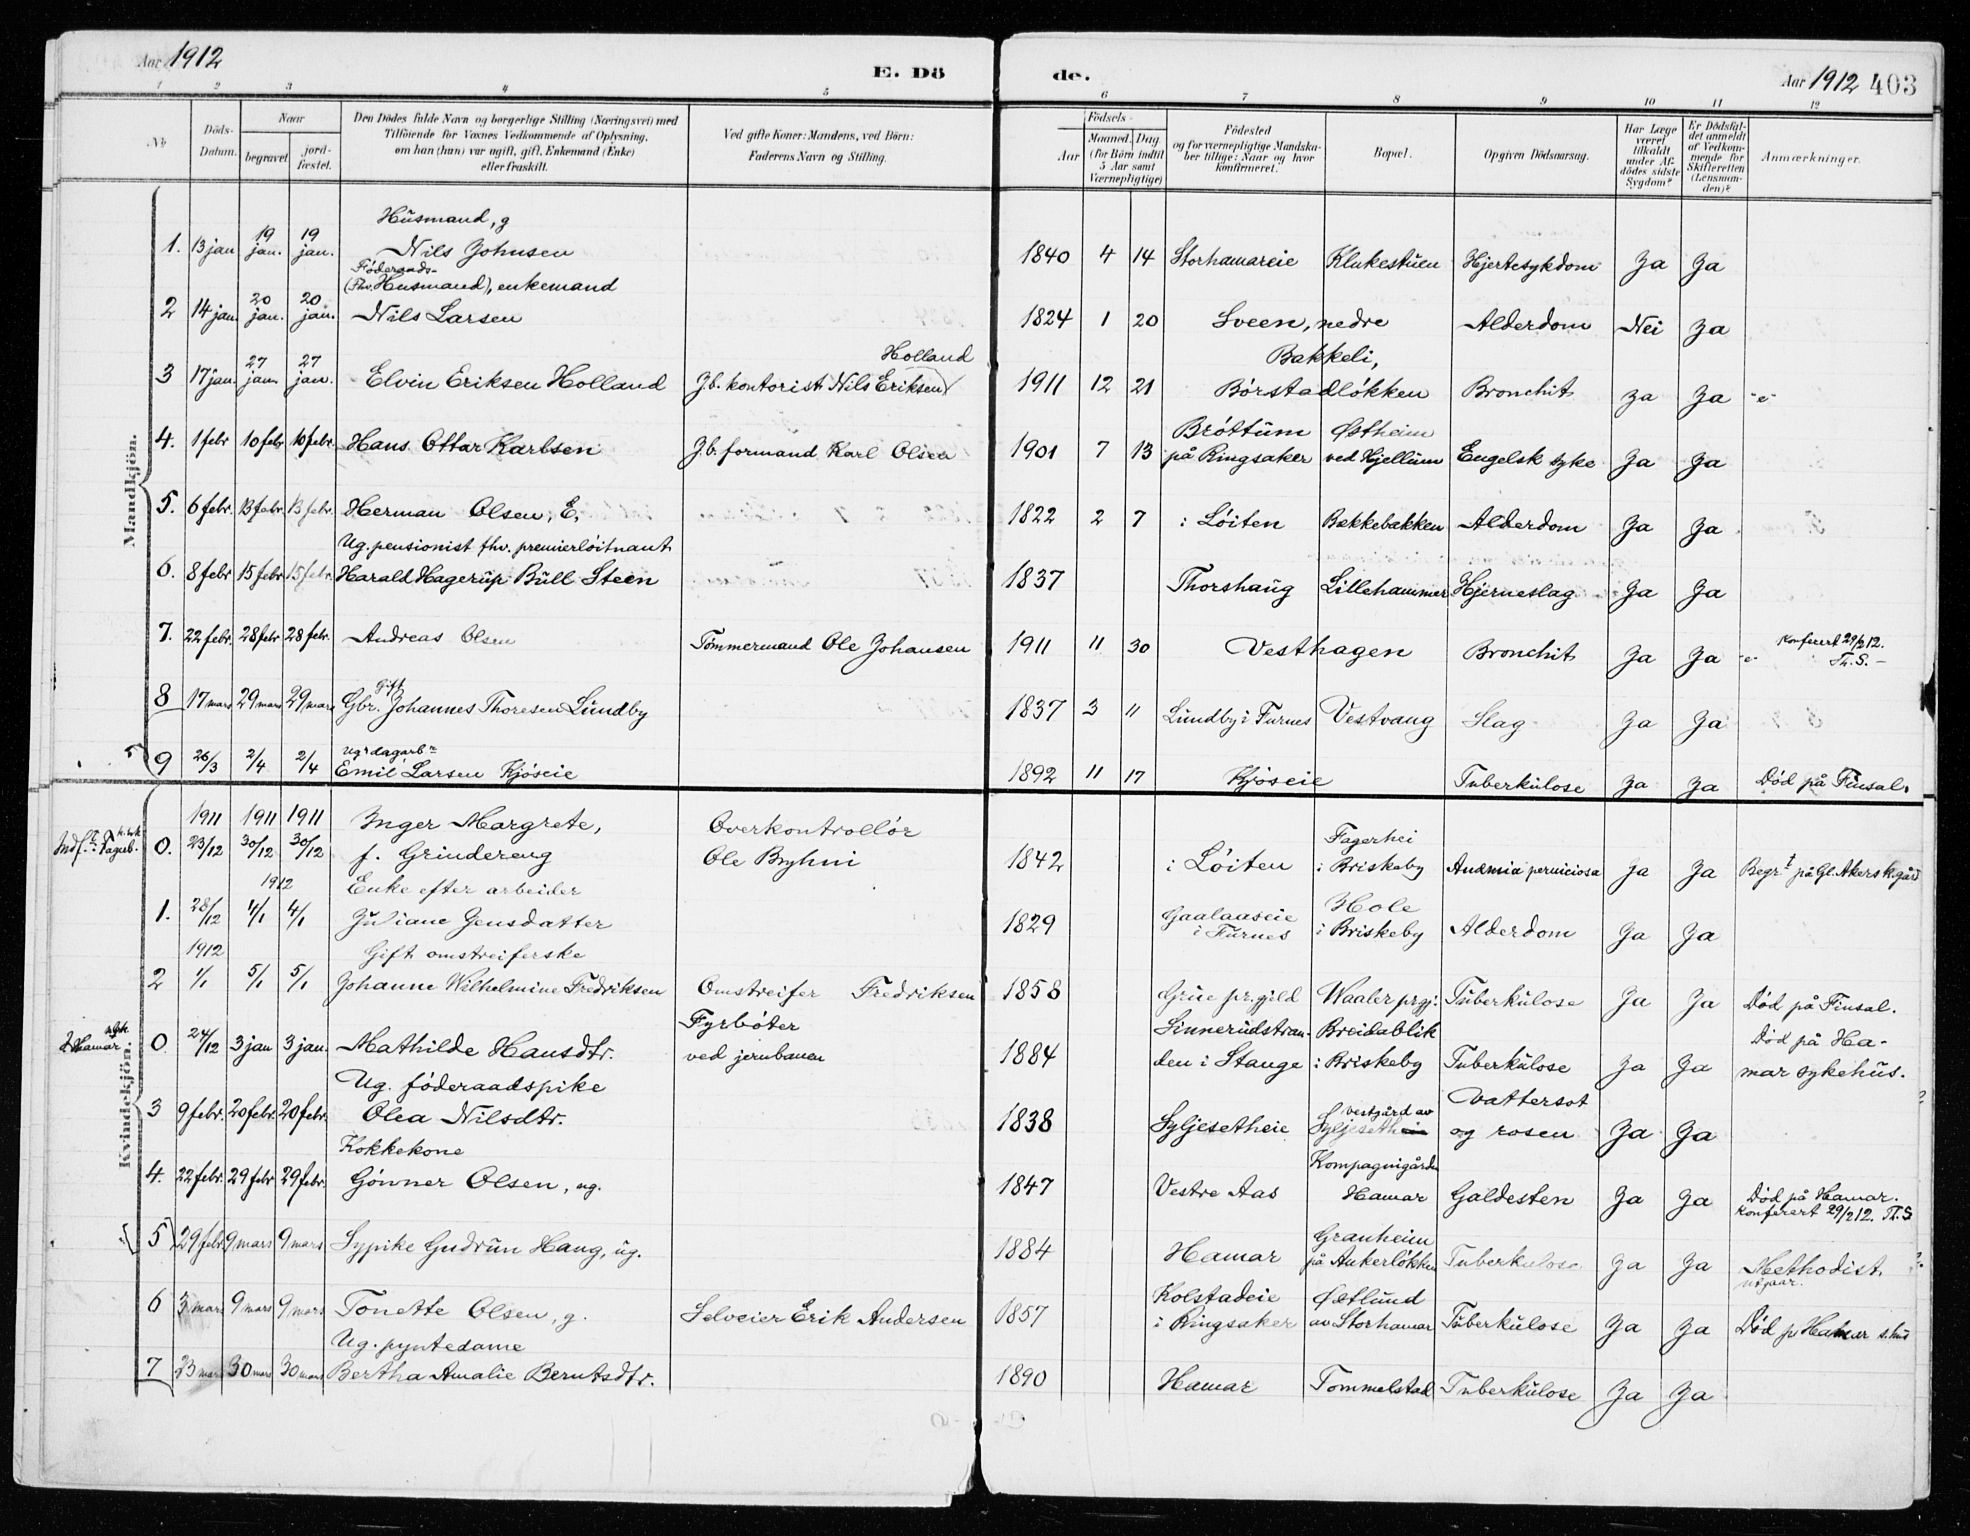 Aar 1912
E. Dö
de.
Aar 1912 403
1 2 3 4 5 6 7 8 9 10 11 12
No
Döds-Datum.
Naar
begravet
jord-fæstet.
Den Dödes fulde Navn og borgerlige Stilling (Næringsvei) med
Tilföiende for Voxnes Vedkommende af Oplysning,
om han (hun) var ugift, gift, Enkemand (Enke)
eller fraskilt.
Ved gifte Koner: Mandens, ved Börn:
Faderens Navn og Stilling.
Födsels-
Aar
Maaned. Dag
(for Börn indtil 5 Aar samt Værnepligtige)
Födested
og for værnepligtige Mandska-
ber tillige: Naar og hvor
konfirmeret.
Bopæl.
Opgiven Dödsaarsag.
Har Læge været tilkaldt under Af-dödes sidste Sygdom?
Er Dödsfal-det anmeldt af Vedkom-mende for Skifteretten (Lensman-den)?
Anmærkninger.
Mandkjön.
Husmand, g
1. 13 jan 19 jan. 19 jan. Nils Johnsen 1840 4 14 Storhamareie Klukestuen Hjertesykdom Ja Ja
Föderaads-
(Fhv. Husmand), enkemand
2 14 jan. 20 jan. 20 jan. Nils Larsen 1824 1 20 Sveen, nedre Alderdom Nei Ja
Holland
Bakkeli,
3 17 jan. 27 jan. 27 jan. Elvin Eriksen Holland J.b. kontorist Nils Eriksen 1911 12 21 Börstadlökken Bronchit Ja Ja "e"
Bröttum Østheim
4. 1 febr 10 febr 10 febr. Hans Ottar Karlsen J.b. formand Karl Olsen 1901 7 13 på Ringsaker ved Hjellum Engelsk syke Ja Ja
5. 6 febr. 13 febr. 13 febr. Herman Olsen, E. 1822 2 7 i Löiten Bakkebakken Alderdom Ja Ja
Ug. pensionist fhv. premierlöitnant
6. 8 febr 15 febr 15 febr. Harald Hagerup Bull Steen 1837 Thorshaug Lillehammer Hjerneslag Ja Ja
7. 22 febr. 28 febr 28 febr. Andreas Olsen Tömmermand Ole Johansen 1911 11 30 Vesthagen Bronchit Ja Ja "e" Konferert 29/2 12.
Th. S. -
gift
8 17 mars 29 mars 29 mars Gbr. Johannes Thoresen Lundby 1837 3 11 Lundby i Furnes Vestvang Slag Ja Ja
ug. dagarbr
9 26/3 2/4 2/4 Emil Larsen Kjöseie 1892 11 17 Kjöseie Tuberkulose Ja Ja Död på Finsal.
Kvindekjön.
1911 1911 1911 Inger Margrete, Overkontrollör Fagerhei
0. 23/12 30/12 30/12 f. Grindereng Ole Bryhni 1842 i Löiten i Briskeby Anæmia perniciosa Ja Ja Begrt på Gl. Akers k.gård
1912 Enke efter arbeider Hole
1. 28/12 4/1 4/1 Juliane Jensdatter 1829 Gaalaaseie i Furnes i Briskeby Alderdom Ja Ja
1912 Gift omstreiferske
2 1/1 5/1 5/1 Johanne Wilhelmine Fredriksen Omstreifer Fredriksen 1858 Grue pr.gjeld Waaler prgj. Tuberkulose Ja Ja Död på Finsal.
Fyrböter Sinnerudstran- Breidablik Död på Ha-
0 24/12 3 jan 3 jan. Mathilde Hansdtr. ved jernbanen 1884 den i Stange i Briskeby Tuberkulose Ja Ja mar sykehus.
Ug. föderaadspike Vattersot
3 9 febr. 20 febr. 20 febr. Olea Nilsdtr. 1838 Syljesetheie vestgård av Syljeseth og rosen Ja Ja
Kokkekone Kompagnigården
4. 22 febr. 29 febr 29 febr. Gönner Olsen, ug. 1847 Vestre Aas Hamar Galdesten Ja Ja Död på Hamar.
Konferert 29/2 12. Th. S
Granheim
5 29 febr 9 mars 9 mars Sypike Gudrun Haug, ug. 1884 Hamar på Ankerlökken Tuberkulose Ja Ja Methodist.
Kolstadeie Østlund
6 3 mars 9 mars 9 mars Tonette Olsen, g. Selveier Erik Andersen 1857 i Ringsaker av Storhamar Tuberkulose Ja Ja Död p Hamar s.hus
Ug. pyntedame
7 23 mars 30 mars 30 mars Bertha Amalie Berntsdtr. 1890 Hamar Tommelstad Tuberkulose Ja Ja